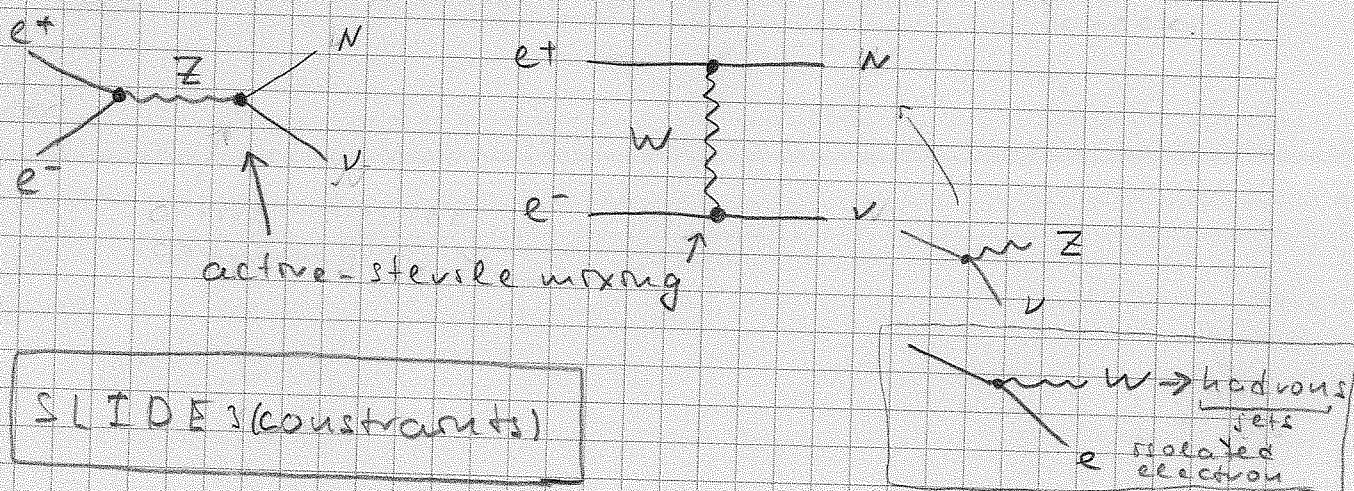 e+
Z
N
e-
ν
e+
N
W
e-
ν
active-sterile mixing
Z
ν
W → hadrons
jets
e isolated
electron
SLIDES (constraints)